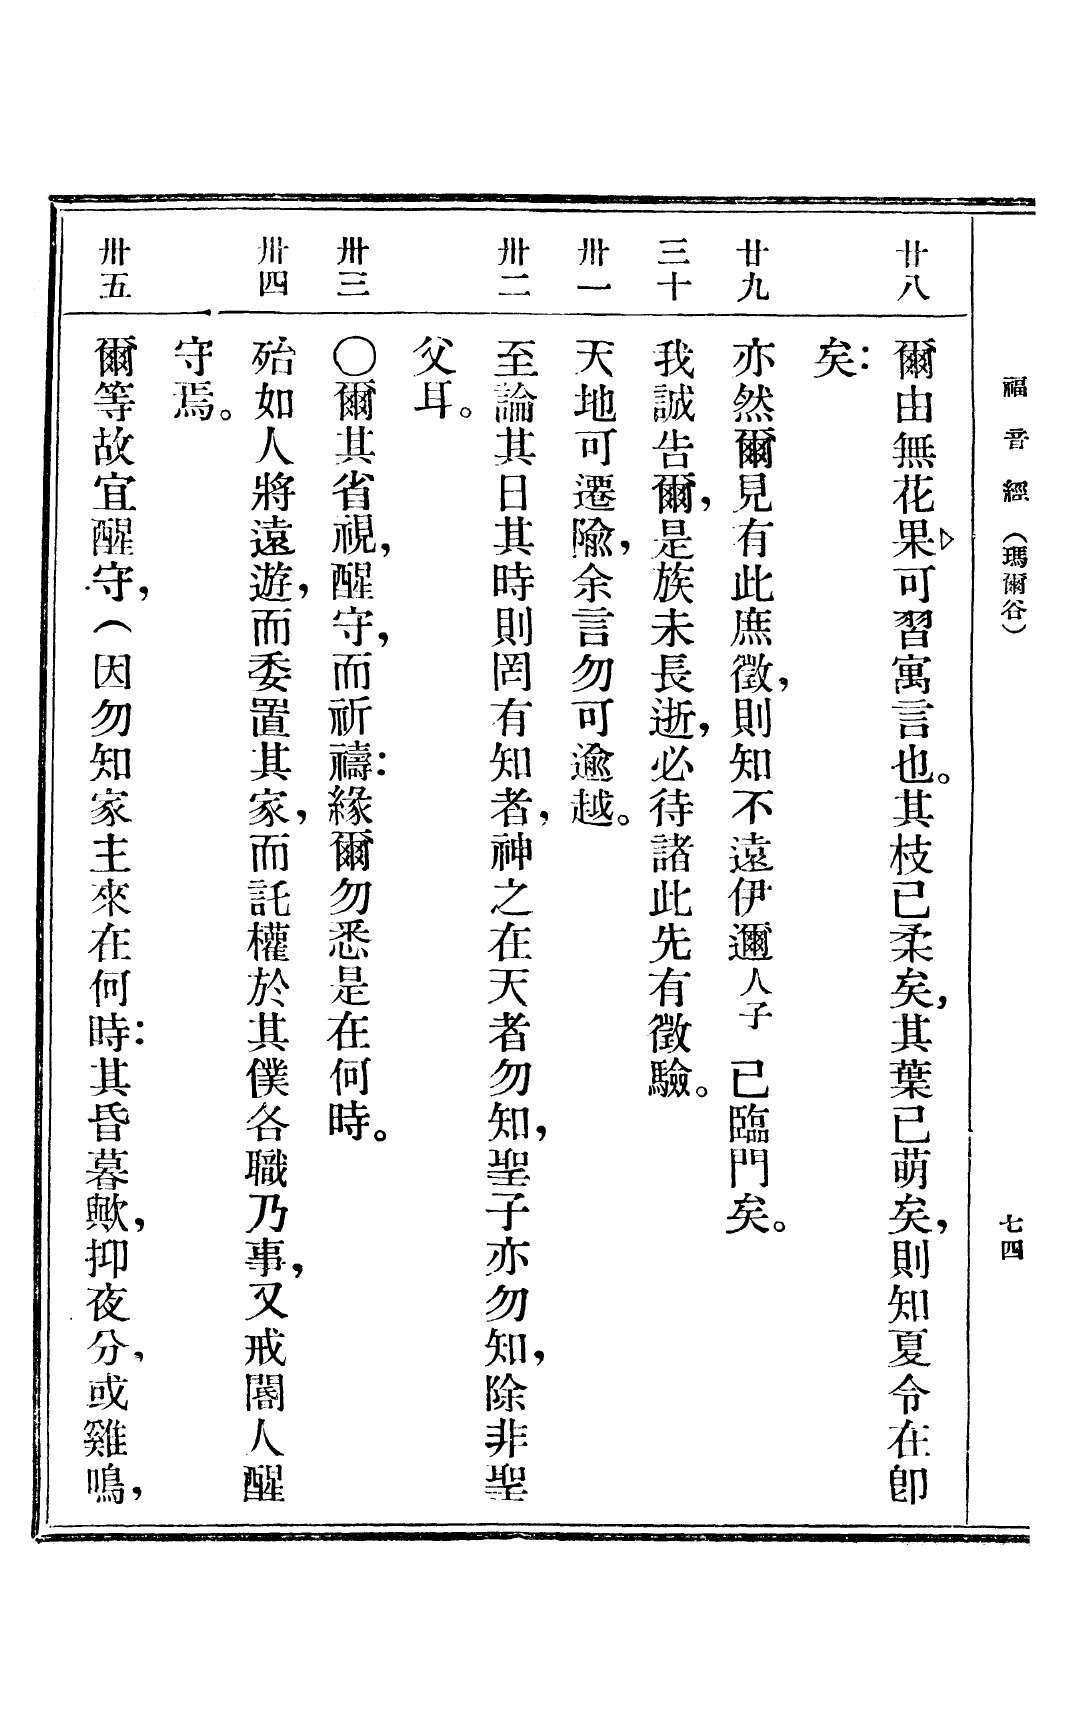 福音經（瑪爾谷）
七四
廿八
爾由無花果▷可習寓言也。其枝已柔矣，其葉已萌矣，則知夏令在卽
矣：
廿九
亦然爾見有此庶徵，則知不遠伊邇人子已臨門矣。
三十
我誠告爾，是族未長逝，必待諸此先有徵驗。
卅一
天地可遷隃，余言勿可逾越。
卅二
至論其日其時則罔有知者，神之在天者勿知，聖子亦勿知，除非聖
父耳。
卅三
〇爾其省視，醒守，而祈禱：緣爾勿悉是在何時。
卅四
殆如人將遠遊，而委置其家，而託權於其僕各職乃事，又戒閽人醒
守焉。
卅五
爾等故宜醒守，（因勿知家主來在何時：其昏暮歟，抑夜分，或雞鳴，